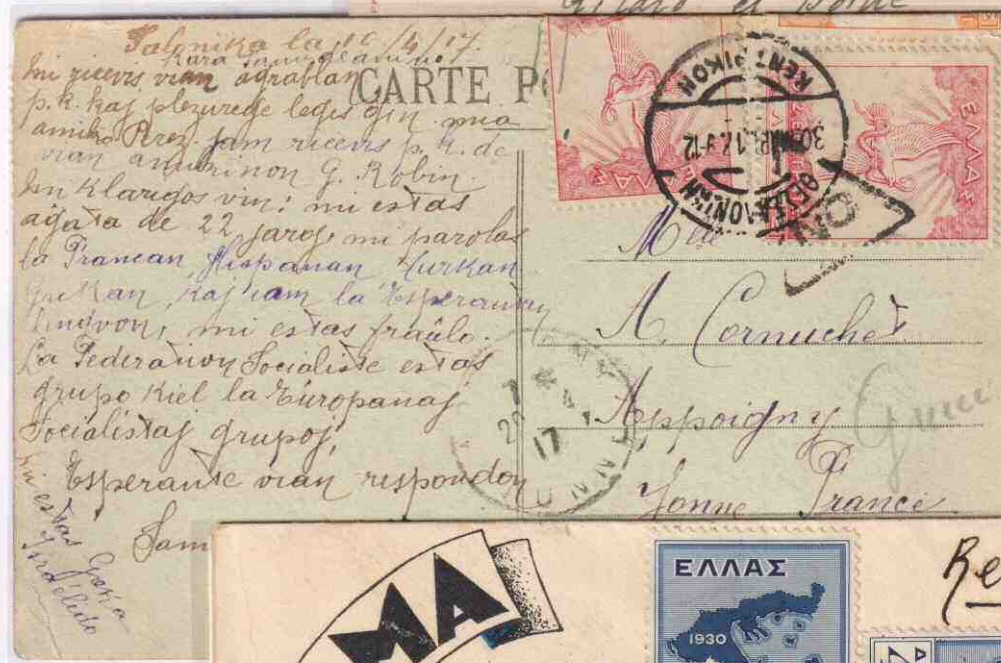 Girard et Boine
Salonika la 16/4/17.
Kara Samideanino
Mi ricevis vian agrablan
p.k. kaj plezurege legis ĝin. mia
amiko Perez jam ricevis p.k. de
vian amikinon G. Robin.
Mi klarigos vin: mi estas
aĝata de 22 jaroj, mi parolas
la Francan Hispanan Turkan
Grekan, kaj iam la Esperantan
lingvon, mi estas fraŭlo.
La Federation Socialiste estas
grupo kiel la Europanaj
Socialistaj grupoj.
Esperante vian respondon
Sam
Mi estas Greka
Israelido
CARTE P
ΕΛΛΑΣ
ΕΛΛΑΣ
ΚΕΝΤΡΙΚΟΝ
ΘΕΣΣΑΛΟΝΙΚΗ
Mlle
A. Cornuchet
Appoigny
Yonne France
Grece
20
17
ΜΑ
ΕΛΛΑΣ
1930
Re